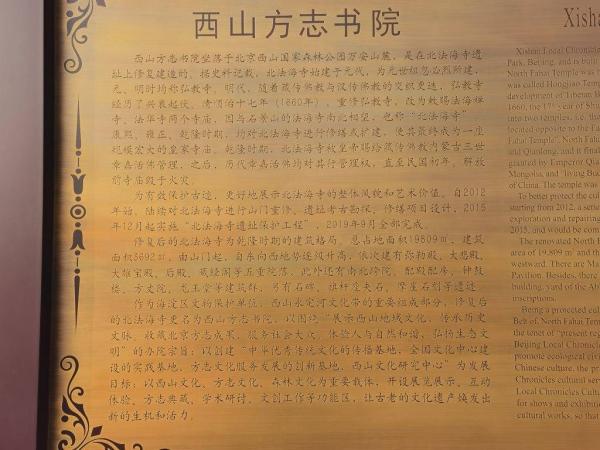 西山方志书院
西山方志书院坐落于北京西山国家森林公园万安山麓，是在北法海寺遗
址上修复建造的。据史料记载，北法海寺始建于元代，为元世祖忽必烈所建，
元、明时均称弘教寺。明代，随着藏传佛教与汉传佛教的交织更迭，弘教寺
经历了兴衰起伏。清顺治十七年（1660年），重修弘教寺，改为敕赐法海禅
寺、法华寺两个寺庙，因与石景山的法海寺南北相望，也称“北法海寺”
康熙、雍正、乾隆时期，均对北法海寺进行修缮或扩建，使其最终成为一座
规模宏大的皇家寺庙。乾隆时期，北法海寺被皇帝赐给藏传佛教内蒙古三世
章嘉活佛管理，之后，历代章嘉活佛均对其行管理权，直至民国初年。解放
前寺庙毁于火灾。
为有效保护古迹，更好地展示北法海寺的整体风貌和艺术价值。自2012
年始，陆续对北法海寺进行山门重修、遗址考古勘探、修缮项目设计，2015
年12月起实施“北法海寺遗址保护工程”，2019年9月全部完成。
修复后的北法海寺为乾隆时期的建筑格局。总占地面积19809㎡，建筑
面积3692㎡，由山门起，自东向西地势逐级升高，依次建有弥勒殿、大悲殿、
大雄宝殿、后殿、藏经阁等五重院落。此外还有南北跨院、配殿配房、钟鼓
楼、方丈院、龙王堂等建筑群，另有石碑、旗杆座夹石、摩崖石刻等遗迹。
作为海淀区文物保护单位，西山永定河文化带的重要组成部分，修复后
的北法海寺更名为西山方志书院，以围绕“展示西山地域文化，传承历史
文脉，收藏北京方志成果，服务社会大众，体验人与自然和谐，弘扬生态文
明”的办院宗旨；以创建“中华优秀传统文化的传播基地，全国文化中心建
设的实践基地，方志文化服务发展的创新基地，西山文化研究中心”为发展
目标；以西山文化、方志文化、森林文化为重要载体，开设展览展示、互动
体验、方志典藏、学术研讨、文创工作等功能区，让古老的文化遗产焕发出
新的生机和活力。
Xishan
Xishan Local Chronicles
Park, Beijing, and is built
North Fahai Temple was b
was called Hongjiao Temp
development of "Tibetan B
1660, the 17th year of Shun
into two temples, i.e. the
located opposite to the Fa
Fahai Temple". North Fahai
and Qianlong, and it final
granted by Emperor Qia
Mongolia, and "living Bud
of China. The temple was
To better protect the cul
starting from 2012, a serie
exploration and repairing
2015, and would be com
The renovated North F
area of 19,809 m² and th
westward. There are Ma
Pavilion. Besides, there
building, yard of the Ab
inscriptions.
Being a protected cult
Belt of, North Fahai Temp
the tenet of "present reg
Beijing Local Chronicle
promote ecological civi
Chinese culture, the pr
Chronicles cultural serv
Local Chronicles Cultu
for shows and exhibitio
cultural works, so that